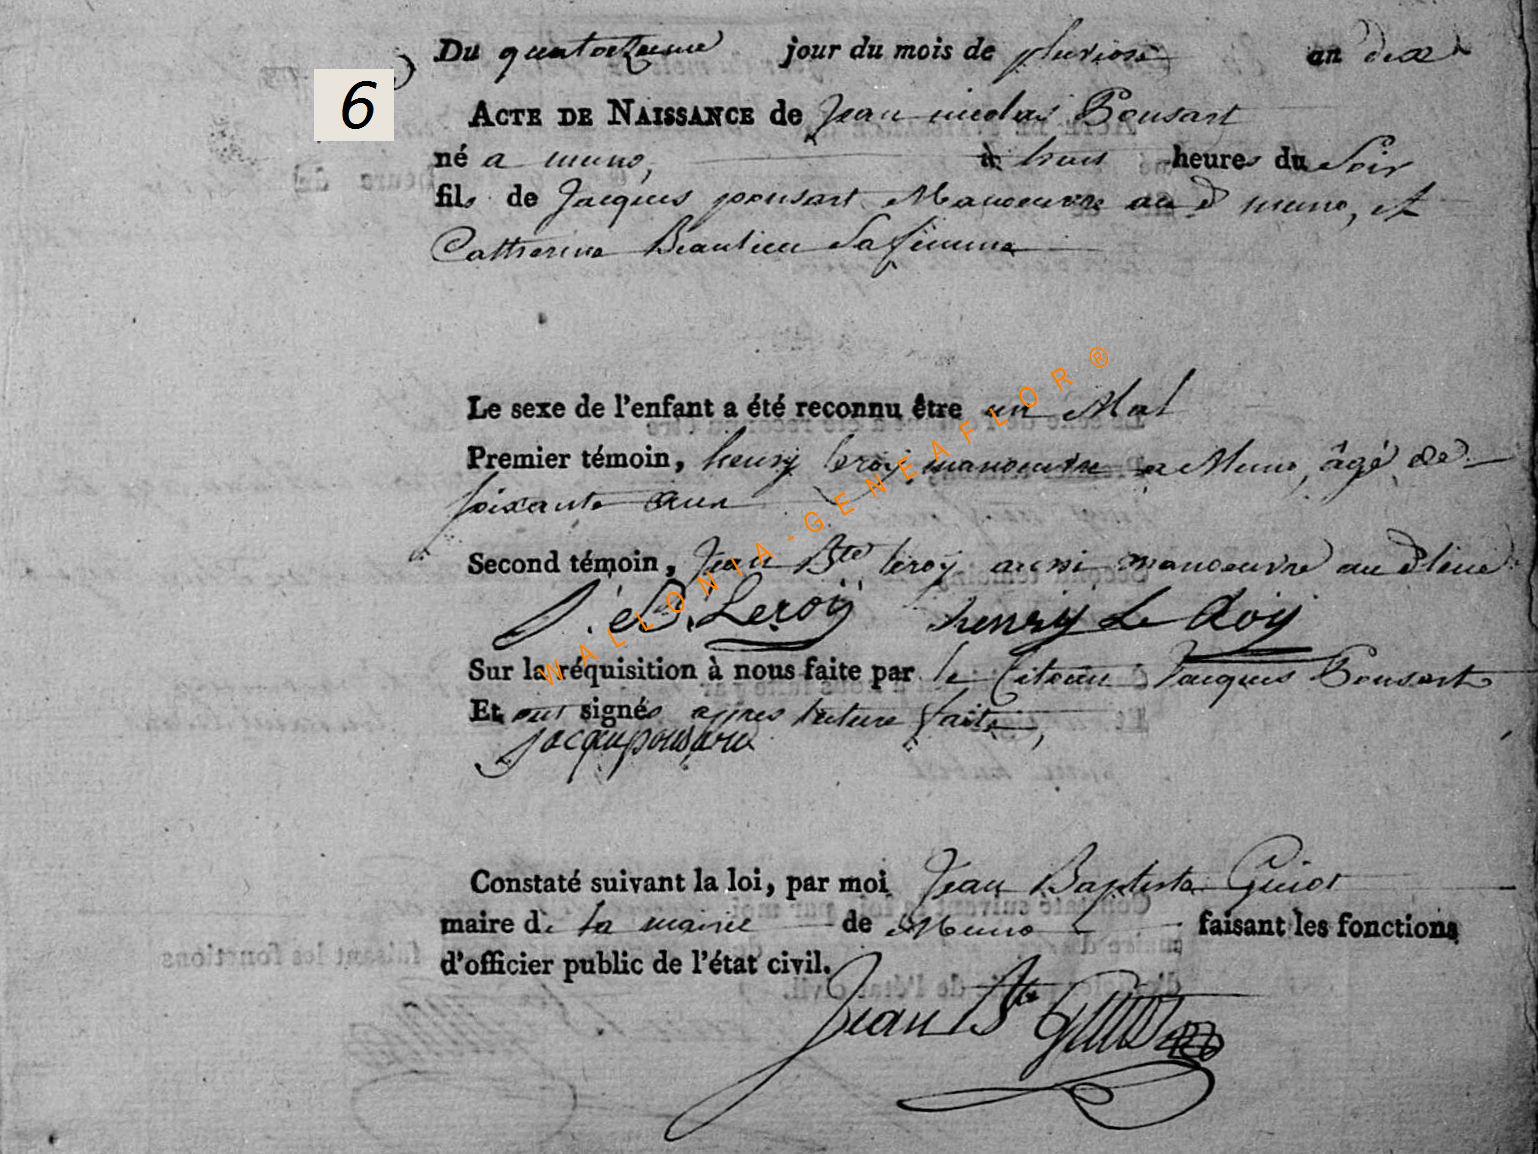 Du quatorzieme jour du mois de pluviose an dix
6
ACTE DE NAISSANCE de Jean nicolas Ponsart
né a muno, à heures du Soir
fils de Jacques ponsart Manoeuvre au d muno, et
Catherine Beaulieu Sa femme
Le sexe de l'enfant a été reconnu être un Mal
Premier témoin, henry leroy, manoeuvre a Muno, âgé de
soixante ans
Second témoin, Jean Bte leroy aussi manoeuvre au d lieu
J. B. Leroy henry Le Roy
Sur la réquisition à nous faite par le Citoien Jacques Ponsart
Et ont signés apres lecture faite,
jacque ponsard
Constaté suivant la loi, par moi Jean Baptiste Guiot
maire de la mairie de Muno faisant les fonctions
d'officier public de l'état civil.
Jean Bte Guiot
WALLONIA-GENEAFLOR®